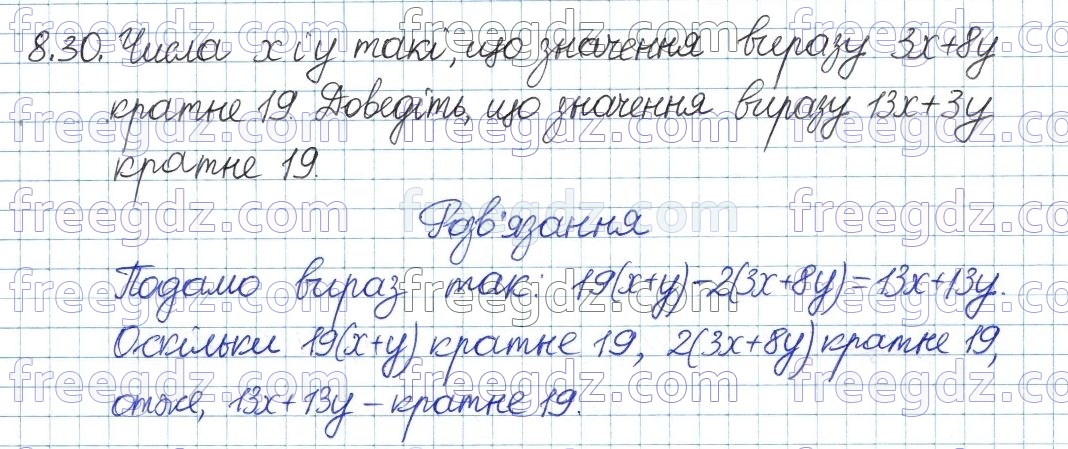 8.30. Числа х і у такі, що значення виразу 3х+8у
кратне 19. Доведіть, що значення виразу 13х+3у
кратне 19.
Розв'язання
Подамо вираз так: 19(х+у)-2(3х+8у)=13х+13у.
Оскільки 19(х+у) кратне 19, 2(3х+8у) кратне 19,
отже, 13х+13у - кратне 19.
freegdz.com